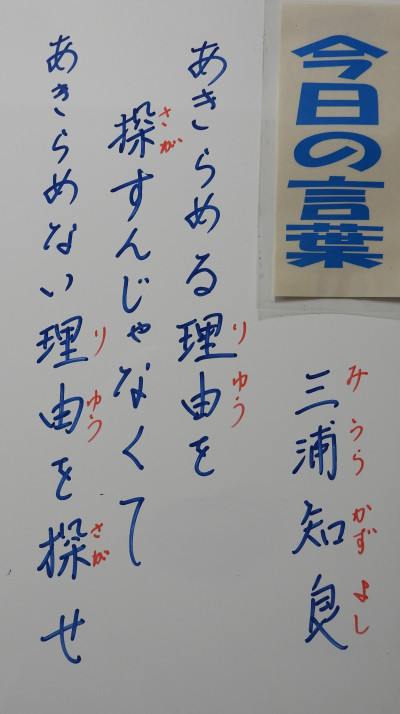 今日の言葉
三浦知良
みうらかずよし
あきらめる理由を
りゆう
探すんじゃなくて
さが
あきらめない理由を探せ
りゆう さが